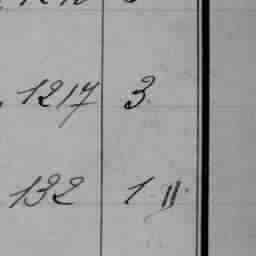 1217 3
132 1 "